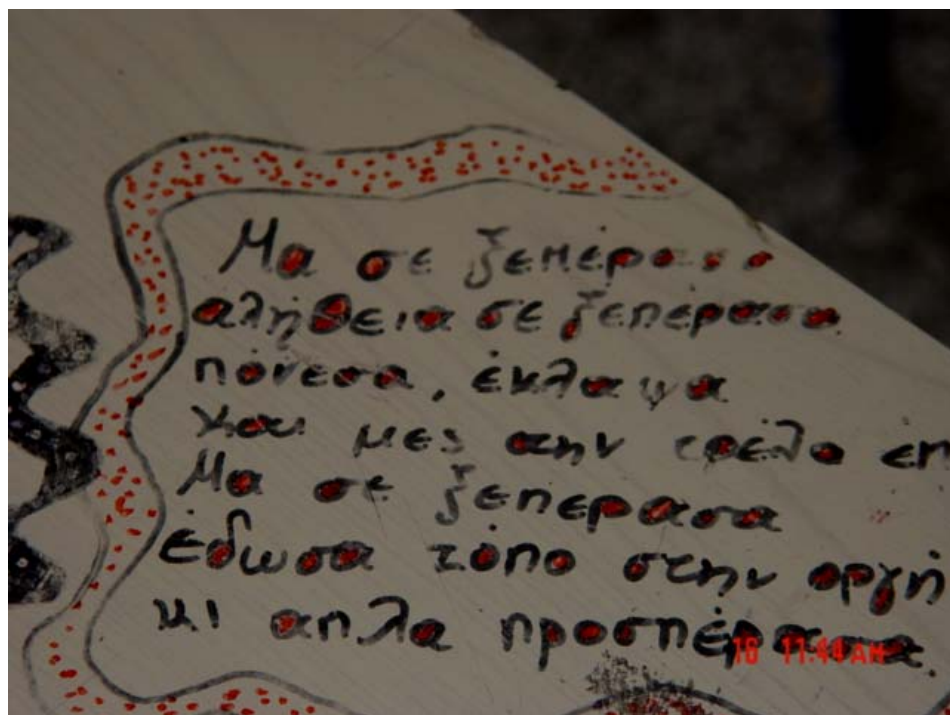 Μα σε ξεπέρασα
αλήθεια σε ξεπερασα
πόνεσα, έκλαψα
και μες στην τρέλα
Μα σε ξεπερασα
έδωσα τόπο στην οργή
κι απλα προσπέρασα
16 11:44AM